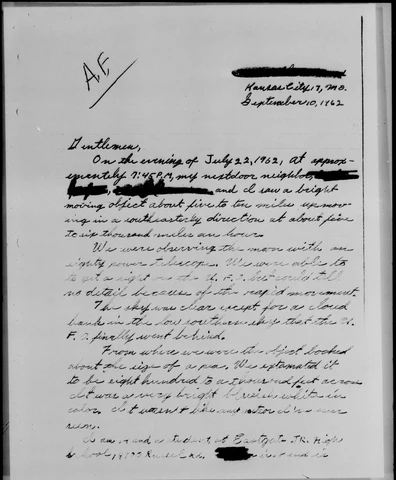 A.F.
Kansas City 17, Mo.
September 10, 1962
Gentlemen,
On the evening of July 22, 1962, at approx-
7:45 P.M, my nextdoor neighbor,
and I saw a bright
moving object about five to ten miles up mov-
ing in a southeasterly direction at about five
to six thousand miles an hour.
We were observing the moon with an
eighty power telescope. We were able to
to get a sight on the U. F. O. but could tell
no detail because of the rapid movement.
The sky was clear except for a cloud
bank in the low southern sky that the U.
F. O finally went behind.
From where we were the object looked
about the size of a pea. We estemated it
to be eight hundred to a thousand feet across
It was a very bright blueish white in
color. It wasent like any I ever
I am and a student at Eastgate JR. High
School,